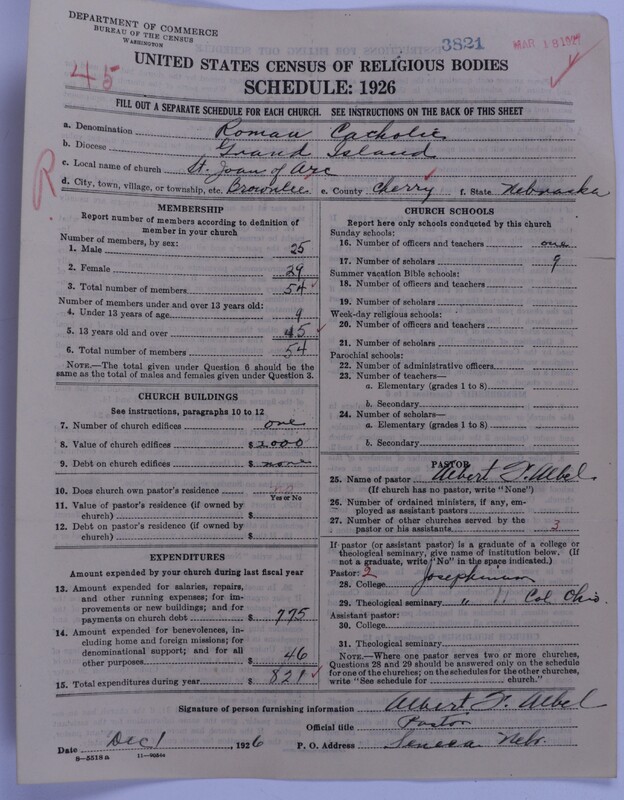 DEPARTMENT OF COMMERCE
BUREAU OF THE CENSUS
WASHINGTON
3821
MAR 18 1927
45
UNITED STATES CENSUS OF RELIGIOUS BODIES
SCHEDULE: 1926
FILL OUT A SEPARATE SCHEDULE FOR EACH CHURCH. SEE INSTRUCTIONS ON THE BACK OF THIS SHEET
a. Denomination Roman Catholic
b. Diocese Grand Island
c. Local name of church St. Joan of Arc
R
d. City, town, village, or township, etc. Brownlee e. County Cherry f. State Nebraska
MEMBERSHIP
Report number of members according to definition of
member in your church
Number of members, by sex:
1. Male 25
2. Female 29
3. Total number of members 54
Number of members under and over 13 years old:
4. Under 13 years of age 9
5. 13 years old and over 45
6. Total number of members 54
NOTE.—The total given under Question 6 should be
same as the total of males and females given under Question 3.
CHURCH BUILDINGS
See instructions, paragraphs 10 to 12
7. Number of church edifices one
8. Value of church edifices $ 2000
9. Debt on church edifices $ none
10. Does church own pastor's residence no
Yes or No
11. Value of pastor's residence (if owned by
church) $
12. Debt on pastor's residence (if owned by
church) $
EXPENDITURES
Amount expended by your church during last fiscal year
13. Amount expended for salaries, repairs,
and other running expenses; for im-
provements or new buildings; and for
payments on church debt $ 775
14. Amount expended for benevolences, in-
cluding home and foreign missions; for
denominational support; and for all
other purposes $ 46
15. Total expenditures during year $ 821
CHURCH SCHOOLS
Report here only schools conducted by this church
Sunday schools:
16. Number of officers and teachers one
17. Number of scholars 9
Summer vacation Bible schools:
18. Number of officers and teachers
19. Number of scholars
Week-day religious schools:
20. Number of officers and teachers
21. Number of scholars
Parochial schools:
22. Number of administrative officers
23. Number of teachers—
a. Elementary (grades 1 to 8)
b. Secondary
24. Number of scholars—
a. Elementary (grades 1 to 8)
b. Secondary
PASTOR
25. Name of pastor Albert F. Albel
(If church has no pastor, write "None")
26. Number of ordained ministers, if any, em-
ployed as assistant pastors
27. Number of other churches served by the
pastor or his assistants 3
If pastor (or assistant pastor) is a graduate of a college or
theological seminary, give name of institution below. (If
not a graduate, write "No" in the space indicated.)
Pastor: 2
28. College Josephinum
29. Theological seminary " " Col Ohio
Assistant pastor:
30. College
31. Theological seminary
NOTE.—Where one pastor serves two or more churches,
Questions 28 and 29 should be answered only on the schedule
for one of the churches; on the schedules for the other churches,
write "See schedule for church."
Signature of person furnishing information Albert F. Albel
Official title Pastor
Date Dec 1 1926 P. O. Address Seneca Nebr.
8—5518 a 11—9054a